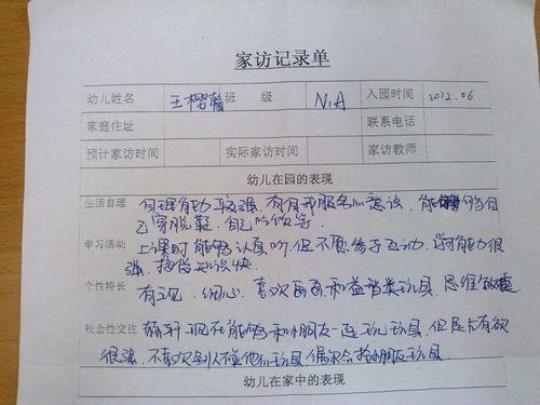 家访记录单
幼儿姓名 王樱 班级 N.A 入园时间 2012.06
家庭住址 联系电话
预计家访时间 实际家访时间 家访教师
幼儿在园的表现
生活自理 自理能力较强,有自我服务心意识,能够自
己穿脱鞋,自己吃饭等.
学习活动 上课时能够认真听,但不愿参于互动,学习能力很
强,接受知识快.
个性特长 有礼、细心、喜欢画画和益智类玩具,思维敏
社会性交往 现在能够和小朋友一起玩玩具,但是占有欲
很强,不喜欢别人碰他的玩具,偶尔会抢小朋友玩具.
幼儿在家中的表现